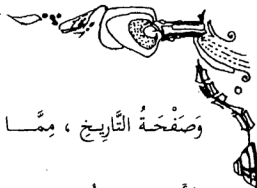 وَصَفْحَـةُ التَّارِيـخِ ، مِمَّـــا